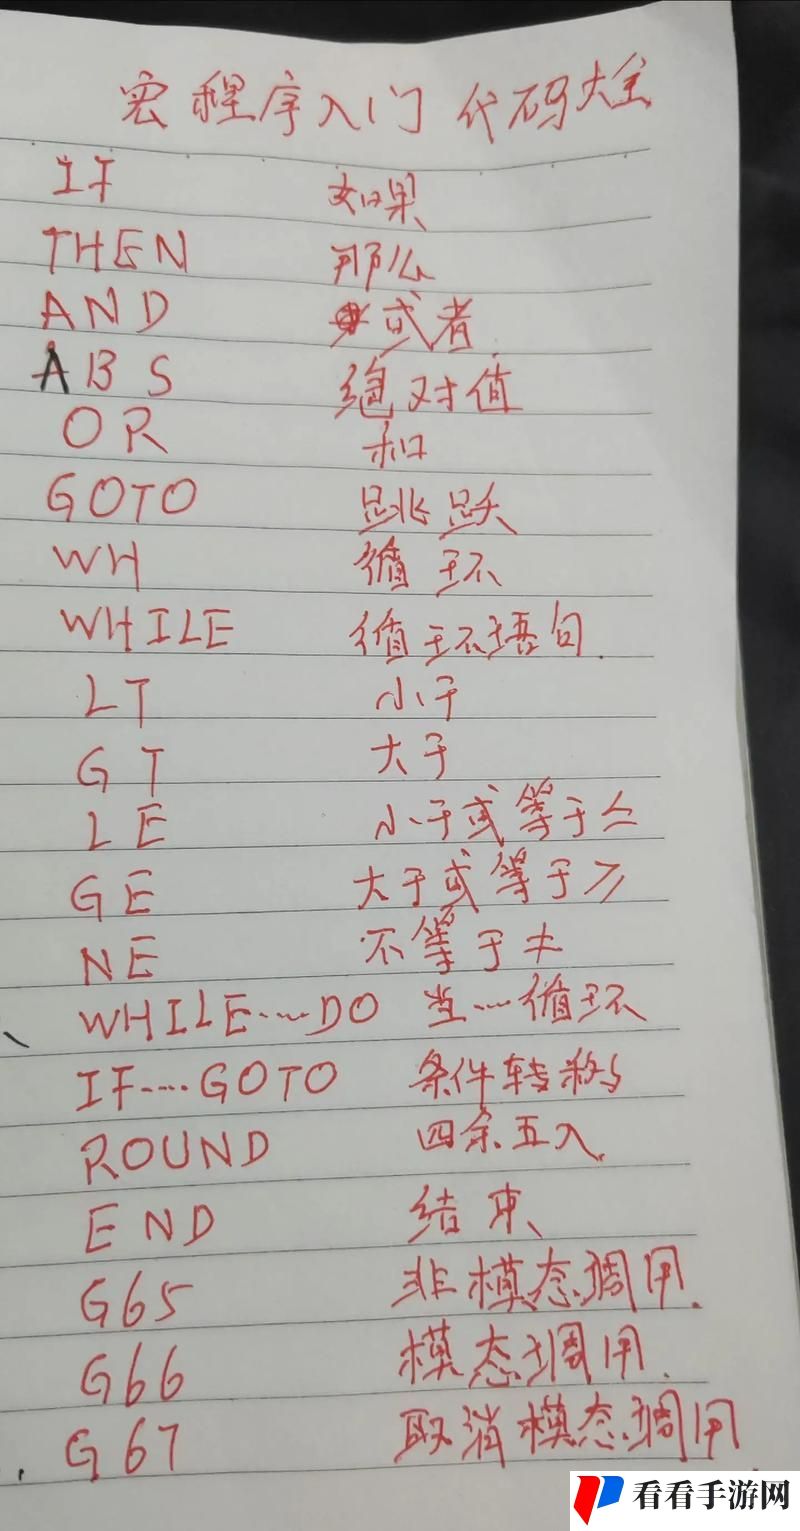 宏程序入门 代码大全
IF 如果
THEN 那么
AND 或者
ABS 绝对值
OR 和
GOTO 跳跃
WH 循环
WHILE 循环语句.
LT 小于
GT 大于
LE 小于或等于≤
GE 大于或等于≥
NE 不等于≠
WHILE……DO 当…循环
IF……GOTO 条件转移
ROUND 四余五入.
END 结束
G65 非模态调用.
G66 模态调用.
G67 取消模态调用
看看手游网